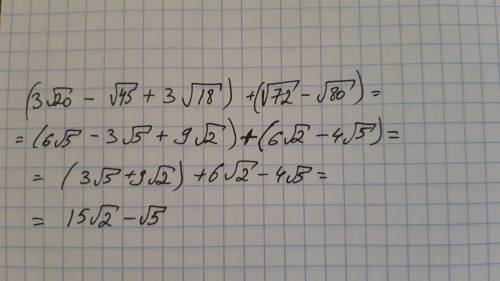 (3√20 − √45 + 3√18) + (√72 − √80) =
= (6√5 − 3√5 + 9√2) + (6√2 − 4√5) =
= (3√5 + 9√2) + 6√2 − 4√5 =
= 15√2 − √5